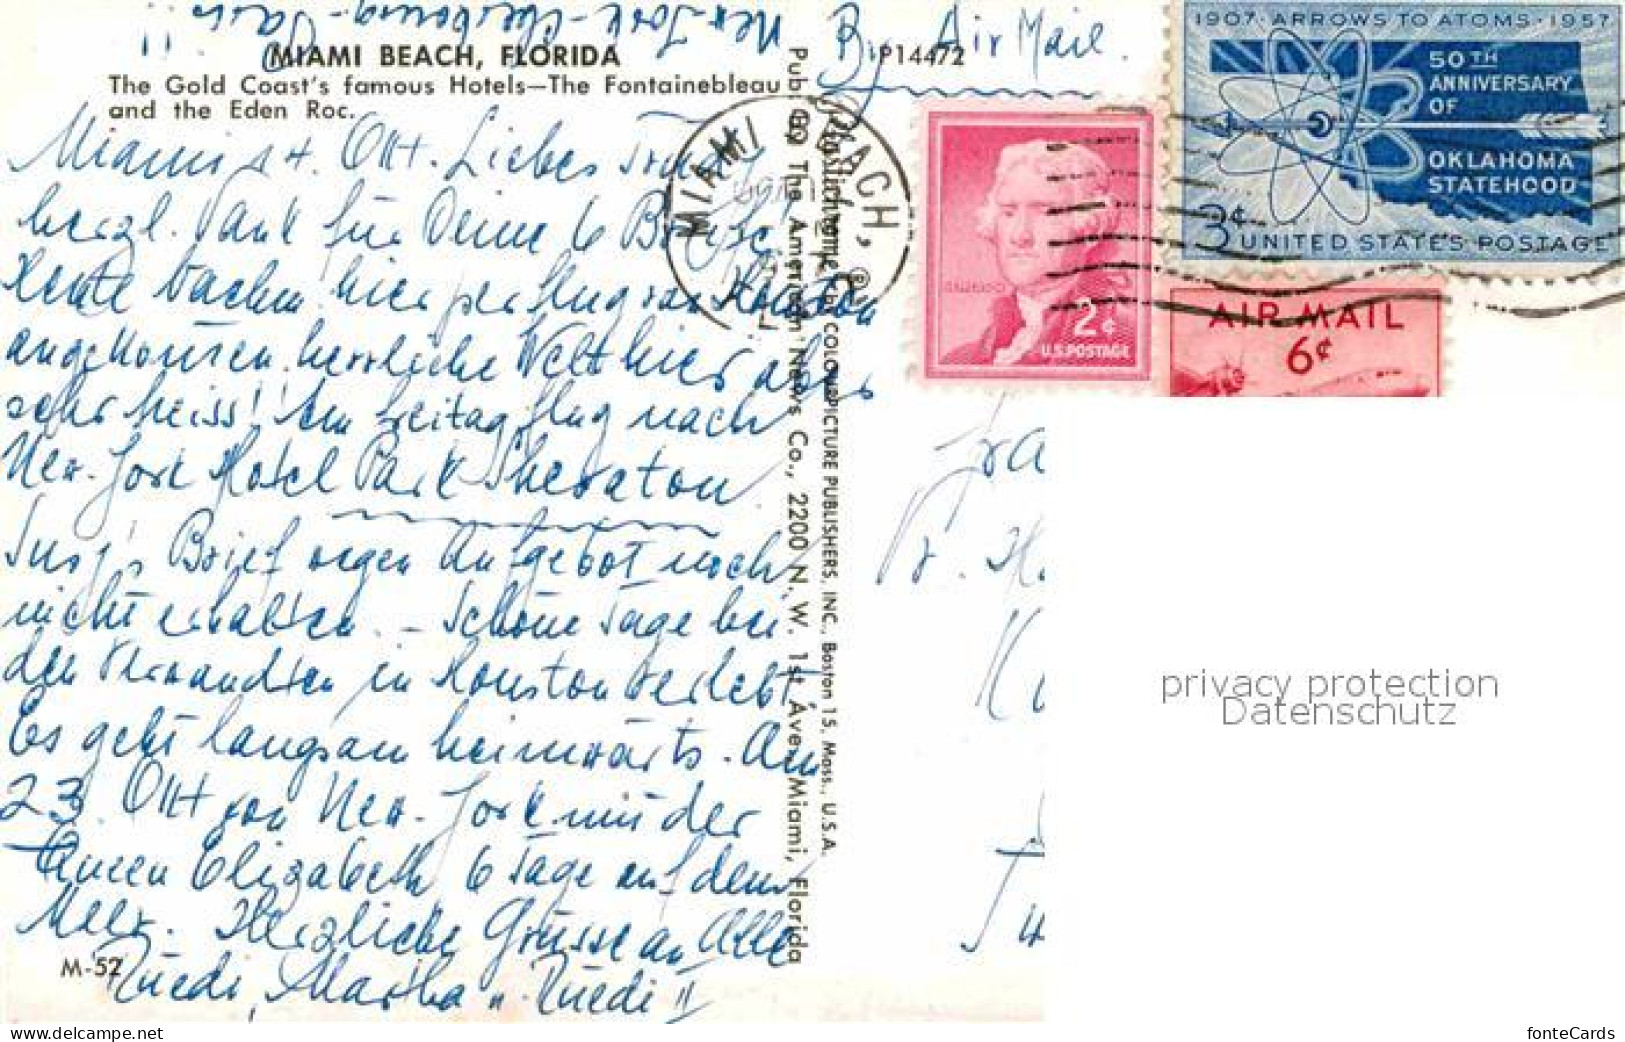 New York - Cherbourg - Paris !!
MIAMI BEACH, FLORIDA
The Gold Coast's famous Hotels—The Fontainebleau
and the Eden Roc.
By Air Mail.
P14472
Miami 14. Okt. Liebes Trudi
herzl. Dank für Deine 6 Briefe!
Heute Nachm. hier per flug von Houston
angekommen. herrliche Welt hier aber
sehr heiss! Am Freitag flug nach
New-York Hotel Park Sheraton
Brief wegen Aufgebot noch
nicht erhalten. - Schöne Tage bei
den Verwandten in Houston verlebt.
Es geht langsam heimwärts. Am
23. Okt von New-York mit der
Queen Elizabeth 6 Tage auf dem
Meer. Herzliche Grüsse an Alle
Ruedi, Martha u. Ruedi II
M-52
Pub. By The American News Co., 2200 N. W. 1st Ave., Miami, Florida
Plastichrome ® by COLOURPICTURE PUBLISHERS, INC., Boston 15, Mass., U.S.A.
MIAMI BEACH,
1907·ARROWS TO ATOMS·1957
50TH
ANNIVERSARY
OF
OKLAHOMA
STATEHOOD
3¢ UNITED STATES POSTAGE
2¢
U.S. POSTAGE
AIR MAIL
6¢
privacy protection
Datenschutz
www.delcampe.net
fonteCards